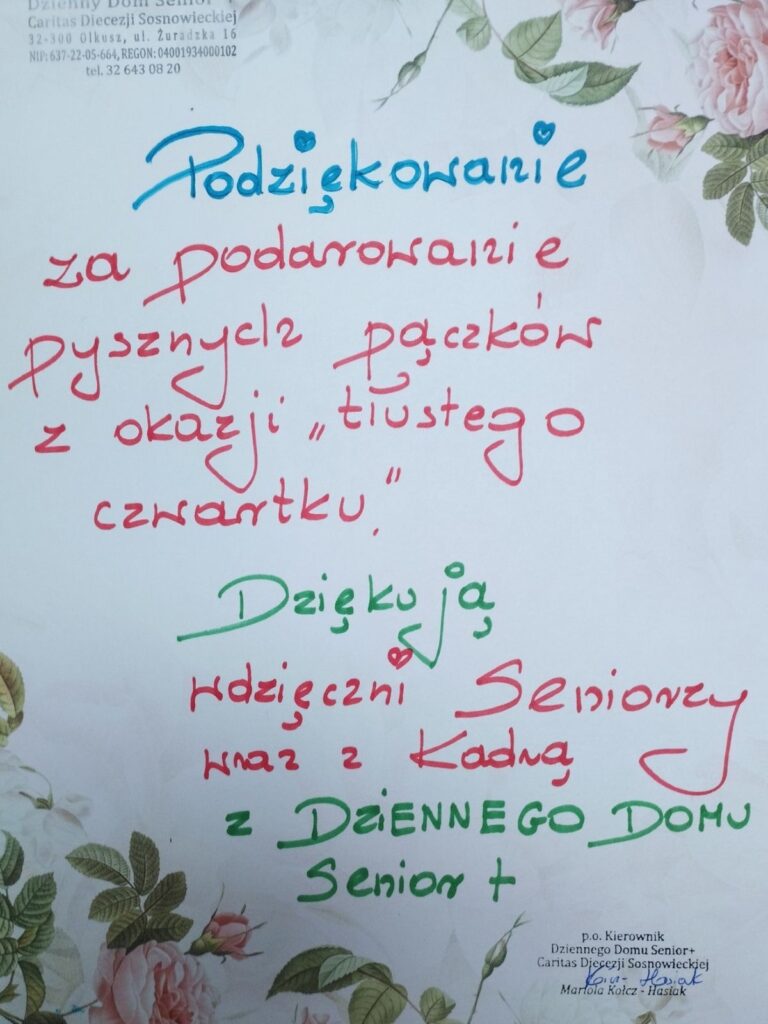 Dzienny Dom Senior+
Caritas Diecezji Sosnowieckiej
32-300 Olkusz, ul. Żuradzka 16
NIP: 637-22-05-664, REGON: 04001934000102
tel. 32 643 08 20
Podziękowanie
za podarowanie
pysznych pączków
z okazji „tłustego
czwartku."
Dziękują
wdzięczni Seniorzy
wraz z Kadrą
z DZIENNEGO DOMU
Senior +
p.o. Kierownik
Dziennego Domu Senior+
Caritas Diecezji Sosnowieckiej
Hasiak
Mariola Kołcz - Hasiak